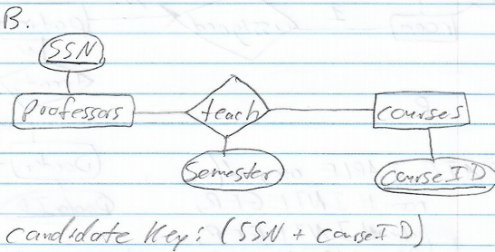 B.
SSN
professors teach courses
Semester courseID
candidate key: (SSN + courseID)